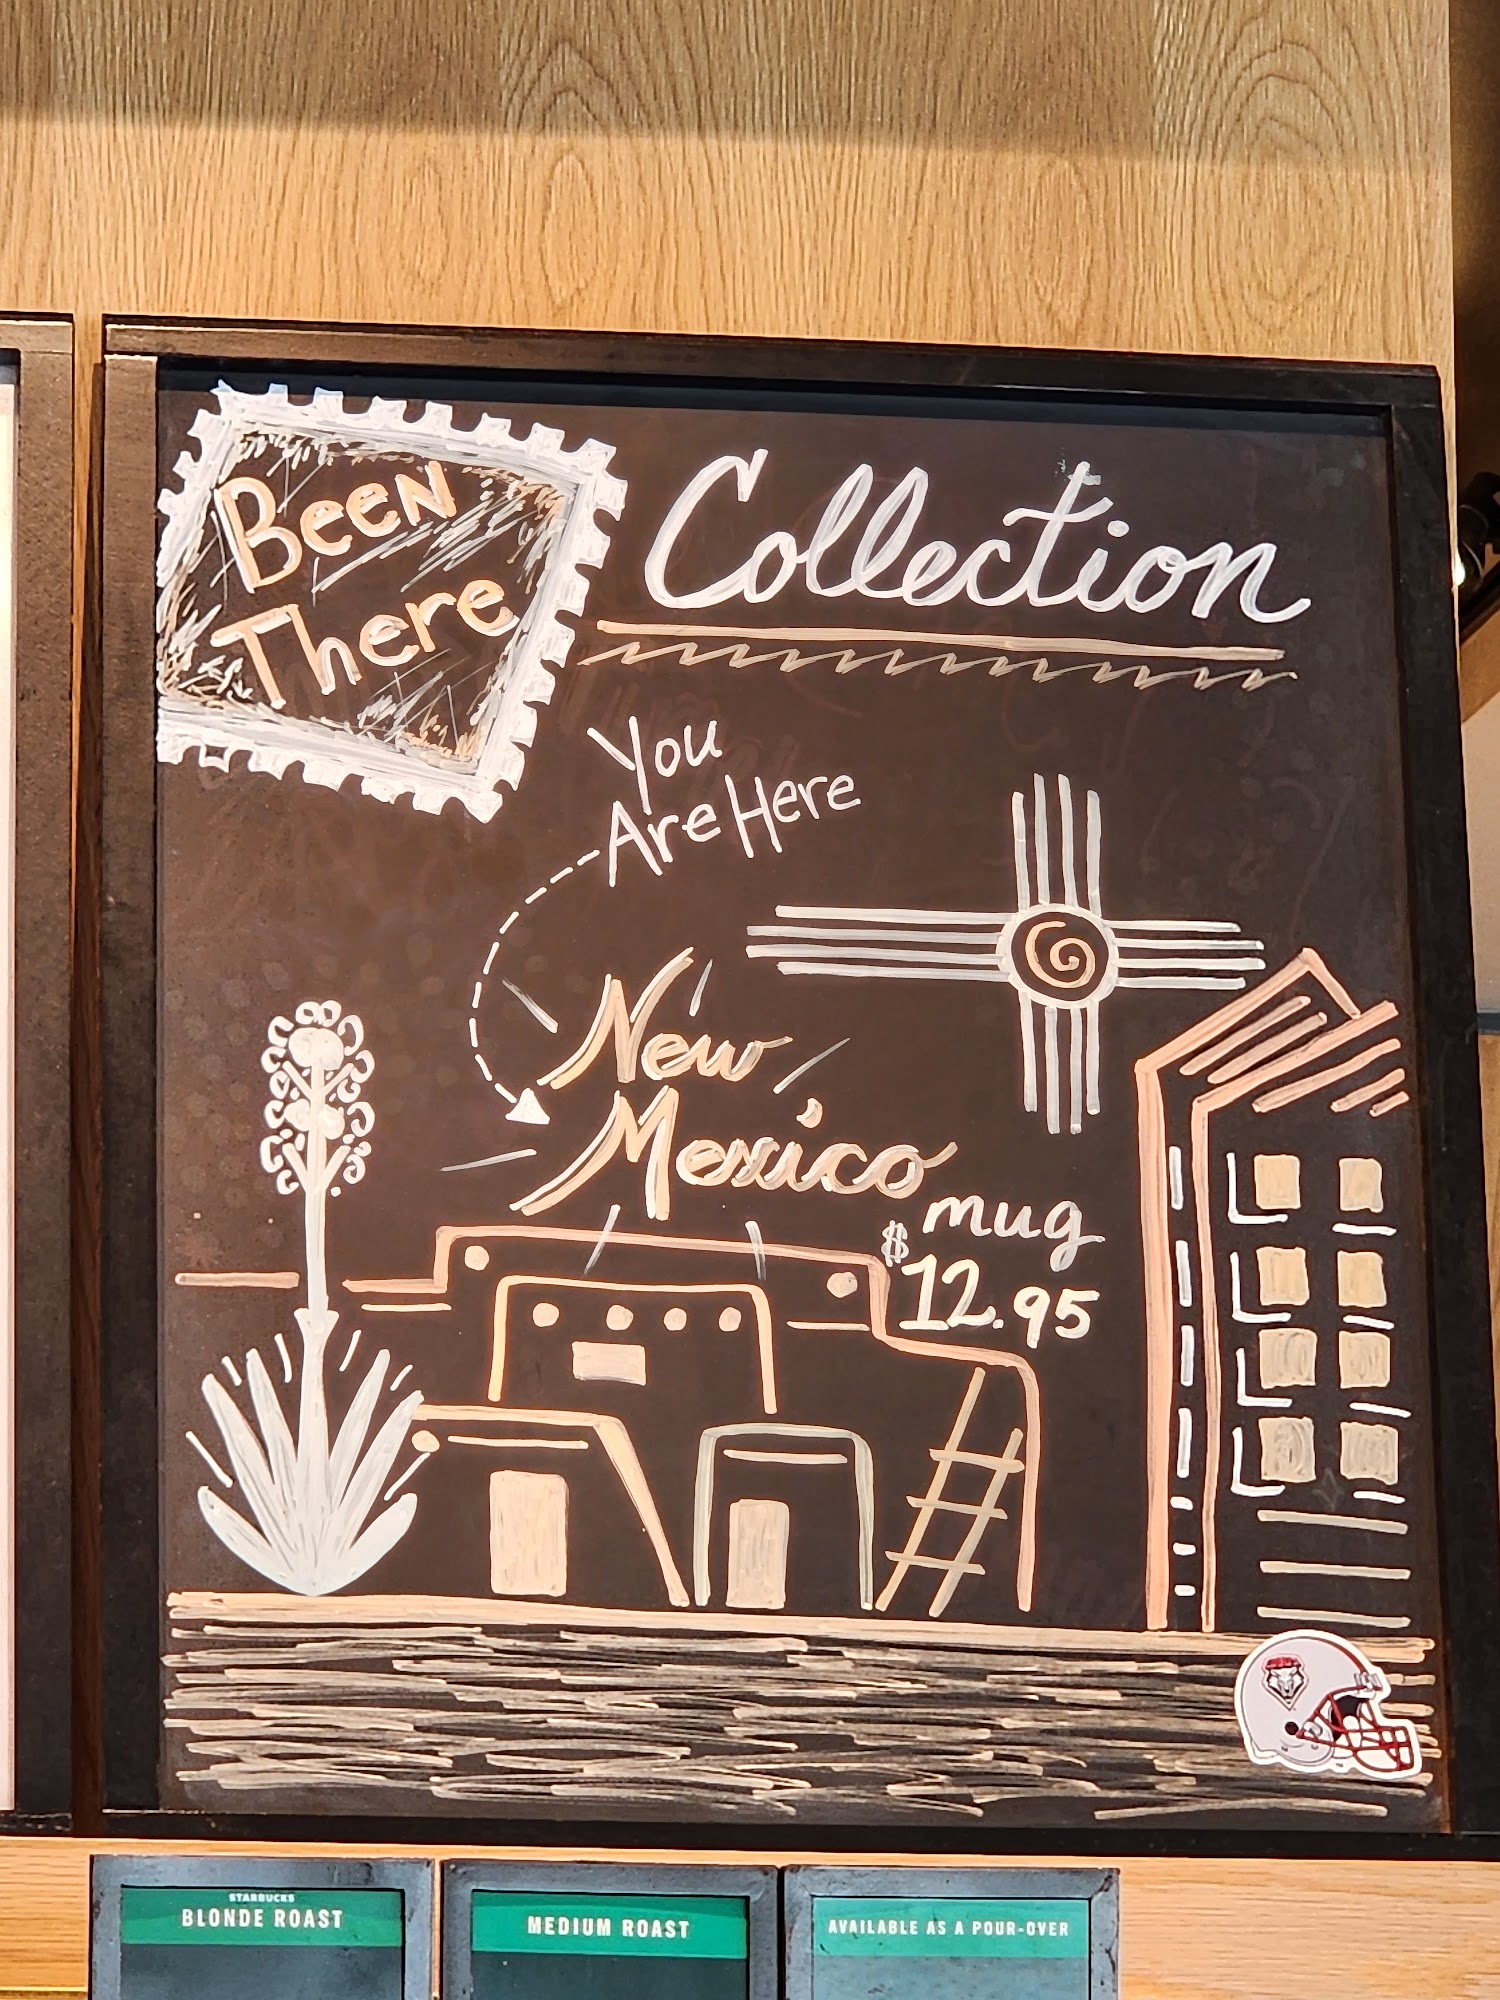 Been
There
Collection
You
Are Here
New
Mexico
mug
$12.95
STARBUCKS
BLONDE ROAST
MEDIUM ROAST
AVAILABLE AS A POUR-OVER